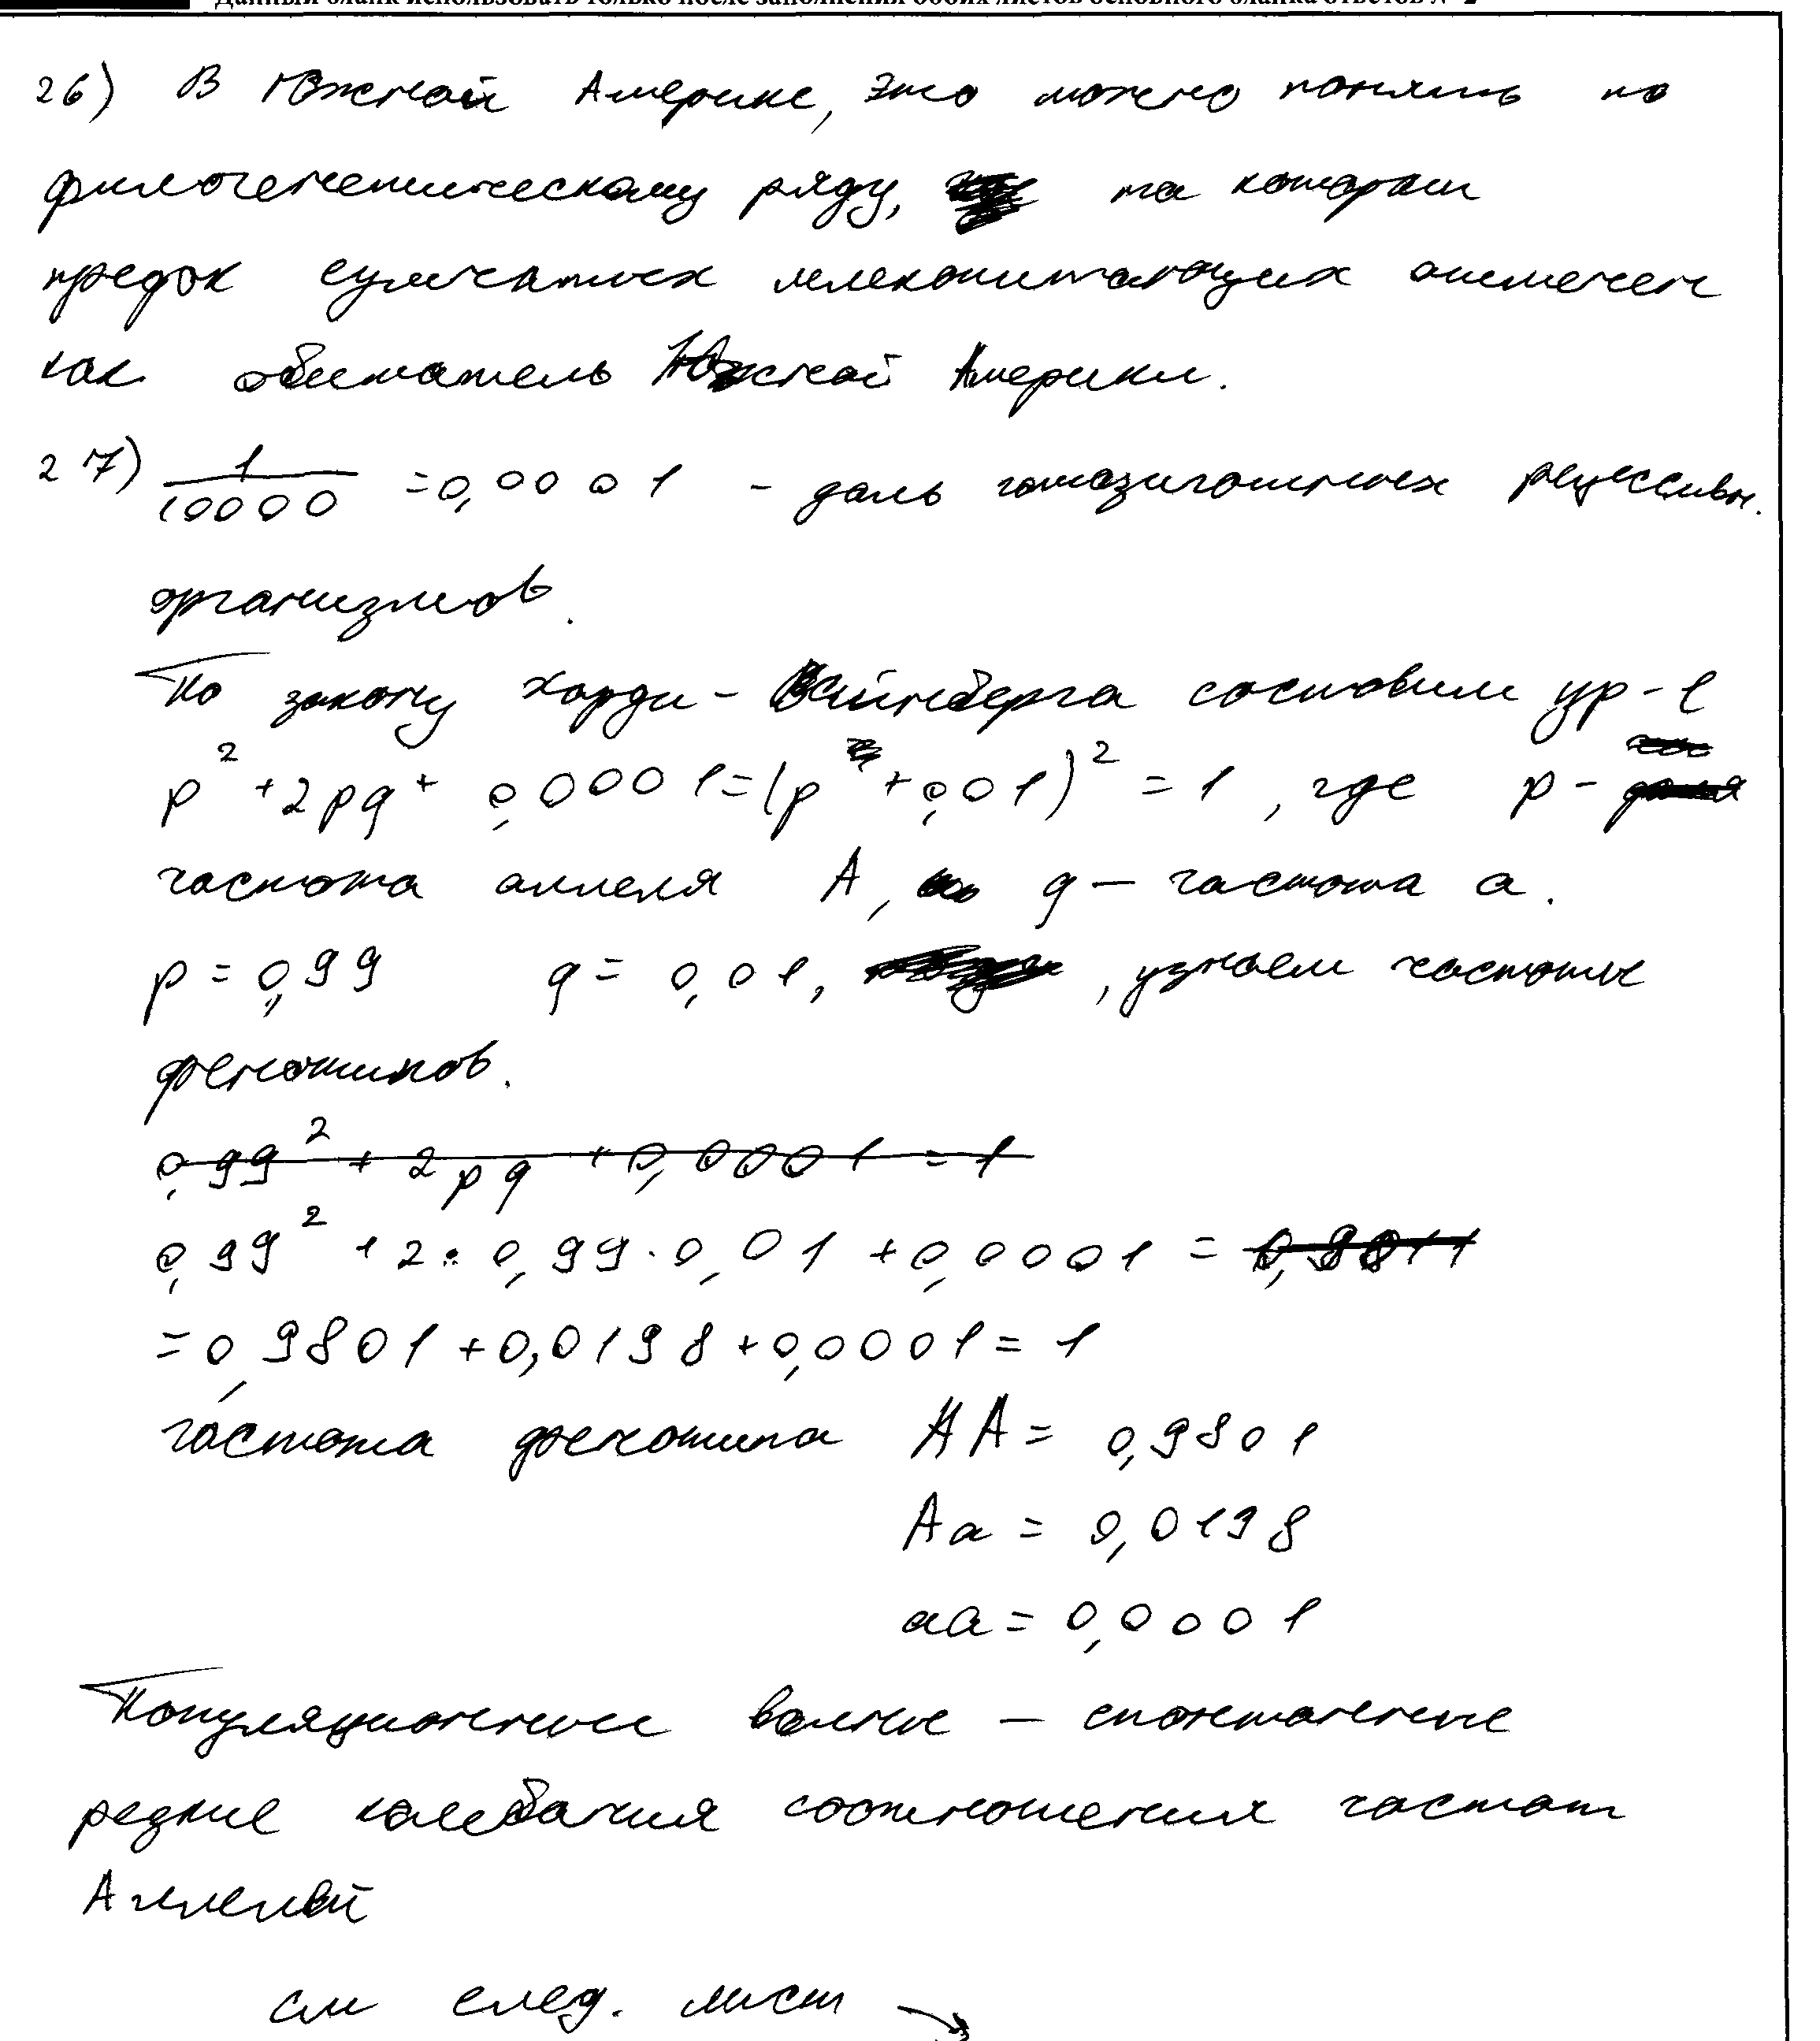 Данный бланк использовать только после заполнения обоих листов основного бланка ответов № 2
26) В Южной Америке, это можно понять по
филогенетическому ряду, на котором
предок сумчатых млекопитающих отмечен
как обитатель Южной Америки.
27) 1/10000 = 0,0001 - доль гомозиготных рецессивн.
организмов.
По закону Харди - Вайнберга составим ур-е
p² + 2pq + 0,0001 = (p + 0,01)² = 1 , где p -
частота аллеля А, q — частота а.
p = 0,99 q = 0,01, , узнаем частоты
фенотипов.
0,99² + 2pq + 0,0001 = 1
0,99² + 2 · 0,99 · 0,01 + 0,0001 =
= 0,9801 + 0,0198 + 0,0001 = 1
частота фенотипа АА = 0,9801
Аа = 0,0198
аа = 0,0001
Популяционные волны — спонтанные
резкие колебания соотношения частот
Аллелей
см след. лист →